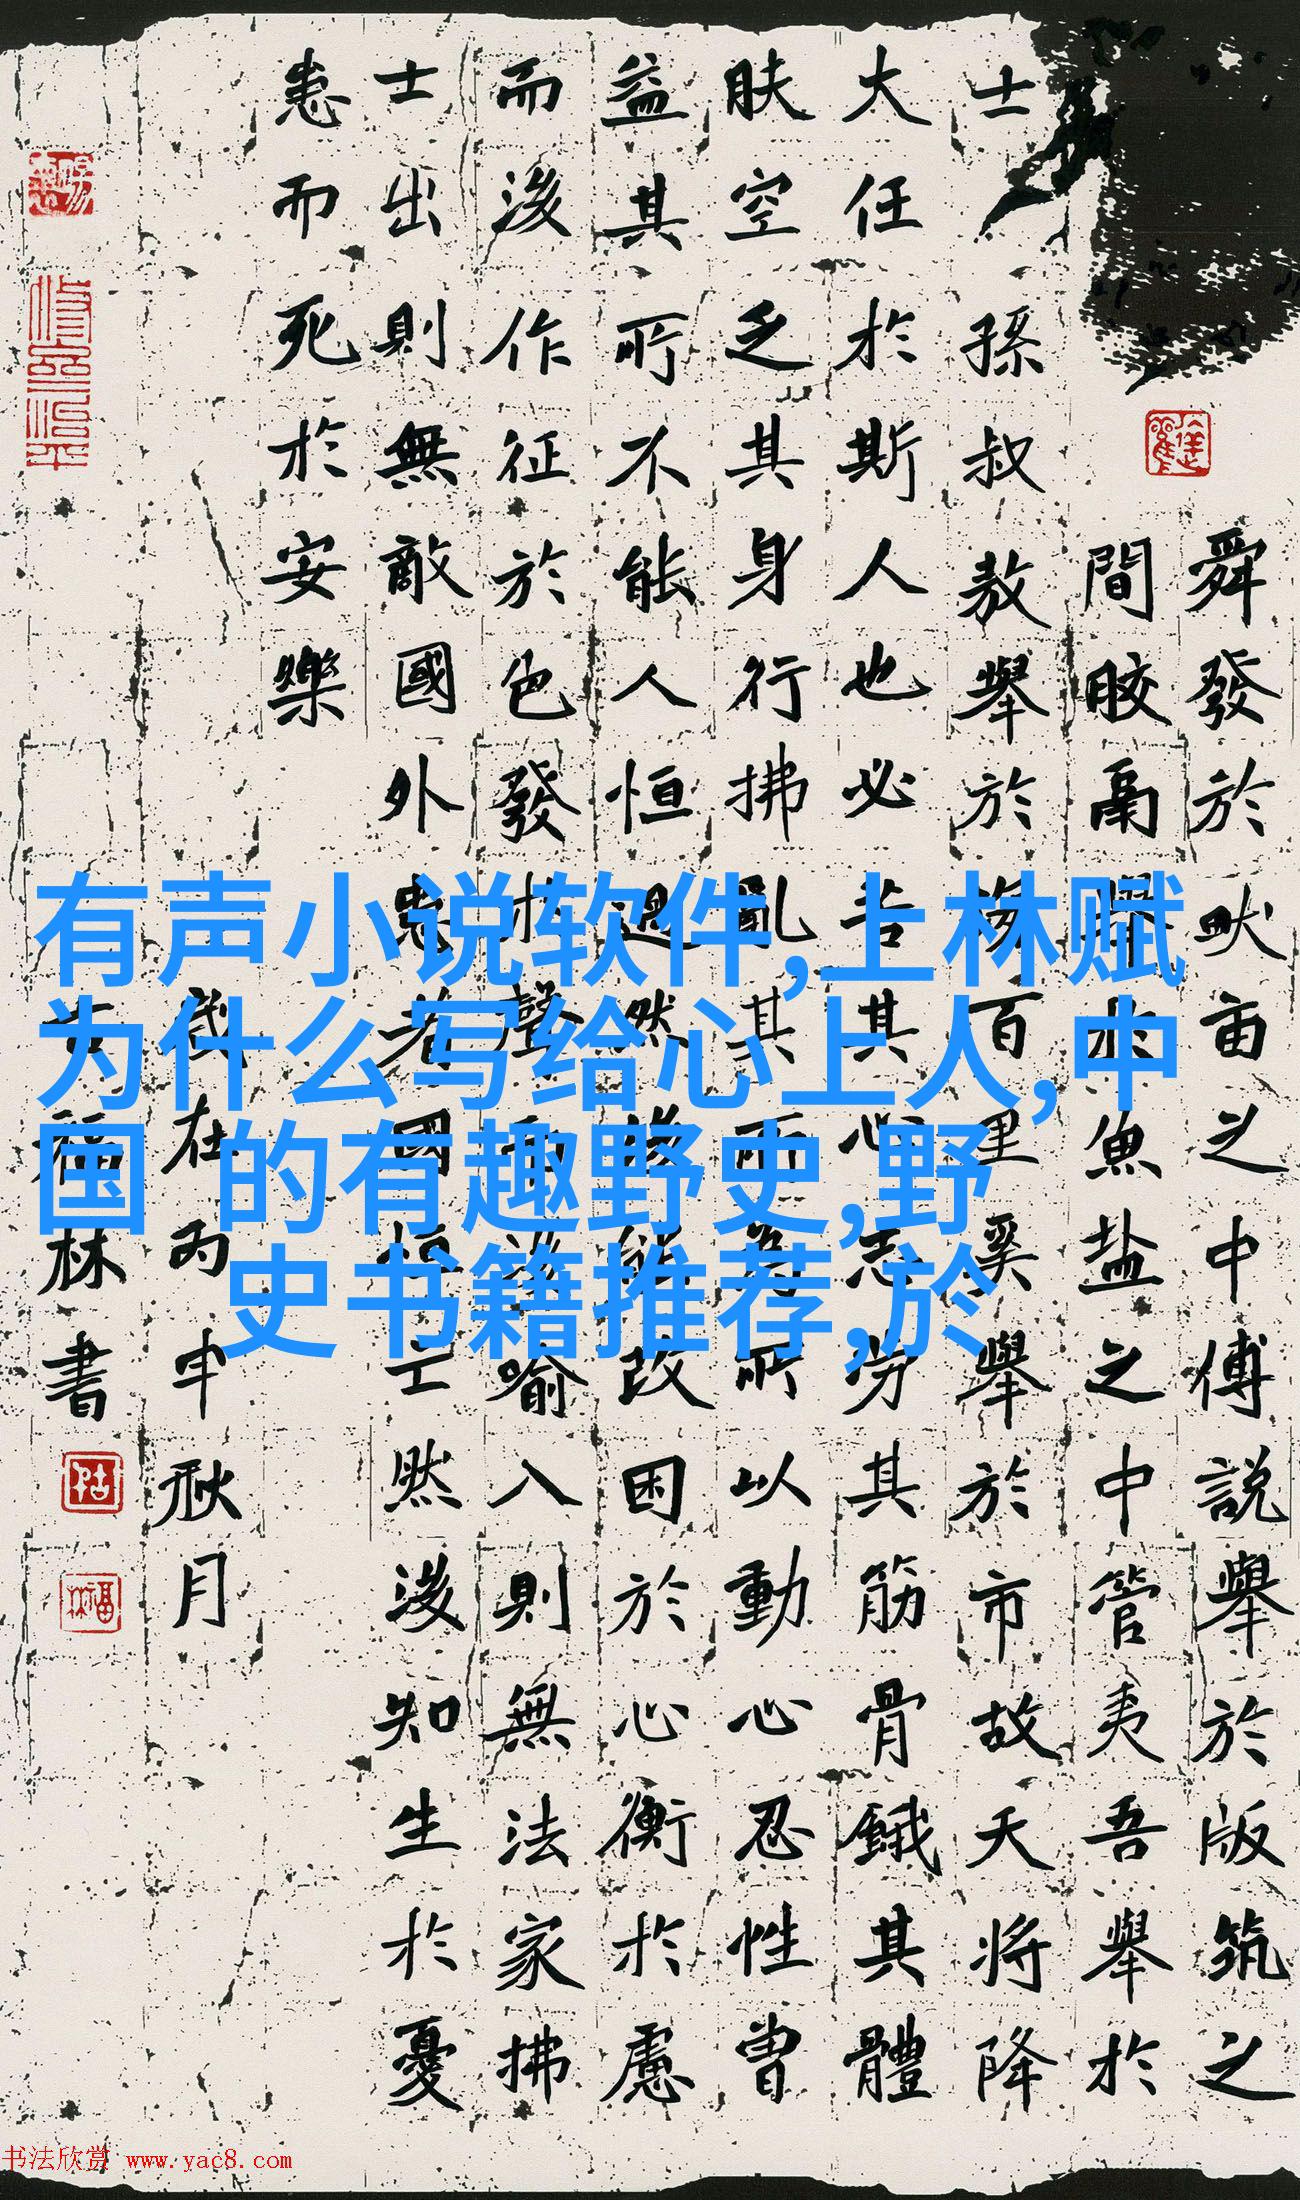 舜發於畎亩之中傅説舉於版筑之
間胶鬲舉於魚盐之中管夷吾舉於
士孫叔敖舉於海百里奚舉於市故天将降
大任於斯人也必苦其心志劳其筋骨餓其體
肤空乏其身行拂亂其所為所以動心忍性曾
益其所不能人恒過然後能改困於心衡於慮
而後作征於色發於聲而後喻入則無法家拂
士出則無敵國外患者國恒亡然後知生於憂
患而死於安樂
歲在丙申秋月
福林書
有声小说软件,上林赋
为什么写给心上人,中
国 的有趣野史,野
史书籍推荐,於
书法欣赏 www.yac8.com